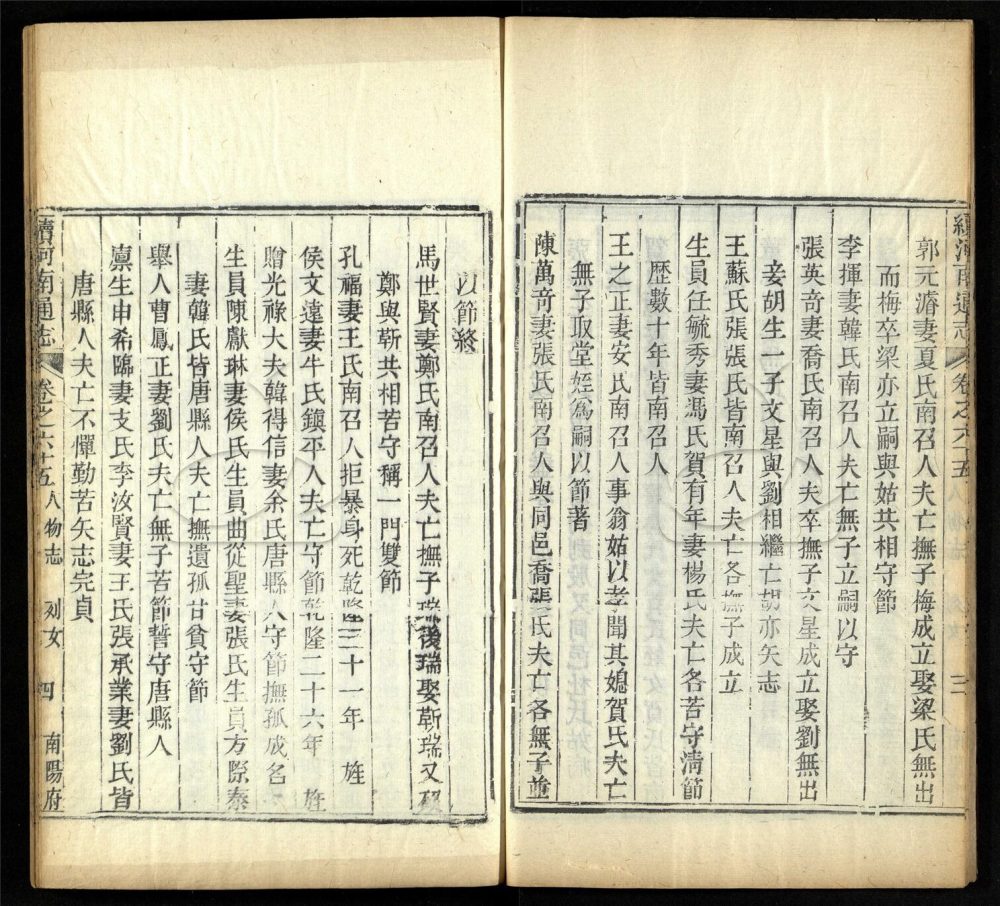 續河南通志 卷之六十五
郭元濬妻夏氏南召人夫亡撫子梅成立娶梁氏無出
而梅卒梁亦立嗣與姑共相守節
李揮妻韓氏南召人夫亡無子立嗣以守
張英奇妻喬氏南召人夫卒撫子文星成立娶劉無出
妾胡生一子文星與劉相繼亡胡亦矢志
王蘇氏張張氏皆南召人夫亡各撫子成立
生員任毓秀妻馮氏賀有年妻楊氏夫亡各苦守清節
歷數十年皆南召人
王之正妻安氏南召人事翁姑以孝聞其媳賀氏夫亡
無子取堂姪為嗣以節著
陳萬奇妻張氏南召人與同邑喬張氏夫亡各無子並
以節終
馬世賢妻鄭氏南召人夫亡撫子瑞後瑞娶靳瑞又歿
鄭與靳共相苦守稱一門雙節
孔福妻王氏南召人拒暴身死乾隆三十一年 旌
侯文遠妻牛氏鎮平人夫亡守節乾隆二十六年 旌
贈光祿大夫韓得信妻余氏唐縣人守節撫孤成名
生員陳獻琳妻侯氏生員曲從聖妻張氏生員方際泰
妻韓氏皆唐縣人夫亡撫遺孤甘貧守節
舉人曹鳳正妻劉氏夫亡無子苦節誓守唐縣人
廩生申希臨妻支氏李汝賢妻王氏張承業妻劉氏皆
唐縣人夫亡不憚勤苦矢志完貞
續河南通志 卷之六十五 人物志 列女 四 南陽府